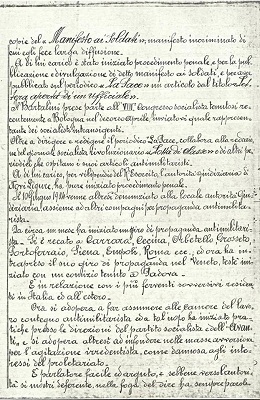 copie del «Manifesto ai Soldati», manifesto incriminato di
cui egli fece larga diffusione.
A di lui carico è stato iniziato procedimento penale per la pub-
blicazione e divulgazione di detto manifesto ai soldati, e per aver
pubblicato sul periodico «La Pace» un articolo dal titolo «Let-
tera aperta di un ufficiale».
Il Bartalini prese parte all'VIII Congresso socialista tenutosi re-
centemente a Bologna nel decorso Aprile, inviatovi quale rappresen-
tante dei socialisti intransigenti.
Oltre a dirigere e redigere il periodico La Pace, collabora alla redazio-
ne del giornale socialista rivoluzionario «Lotta di classe» e di altri pe-
riodici che ospitano i suoi articoli antimilitaristi.
A di lui carico, per vilipendio dell'Esercito, l'autorità giudiziaria di
Novi Ligure, ha pure iniziato procedimento penale.
Il 10 Giugno 1904 venne altresì denunziato alla locale autorità Giu-
diziaria, assieme ad altri compagni per propaganda, antimilita-
rista.
Da circa un mese ha iniziato un giro di propaganda, antimilitari-
sta. Si è recato a Carrara, Cecina, Orbetello, Grosseto,
Portoferraio, Siena, Empoli, Roma ecc., ed ora ha in-
trapreso il suo giro di propaganda nel Veneto, testè ini-
ziato con un comizio tenuto a Padova.
È in relazione con i più ferventi sovversivi residen-
ti in Italia ed all'estero.
Ora si adopera a far assumere alle Camere del lavo-
ro contegno antimilitarista ed a tal uopo ha iniziato pra-
tiche presso le direzioni del partito socialista dell'Avan-
ti, e si adopera altresì ad infondere nelle masse avversione
per l'agitazione irredentista, come dannosa agli inte-
ressi del proletariato.
È parlatore facile ed arguto, e sebbene verso l'autori-
tà si mostri deferente, nella foga del dire ha sempre parole